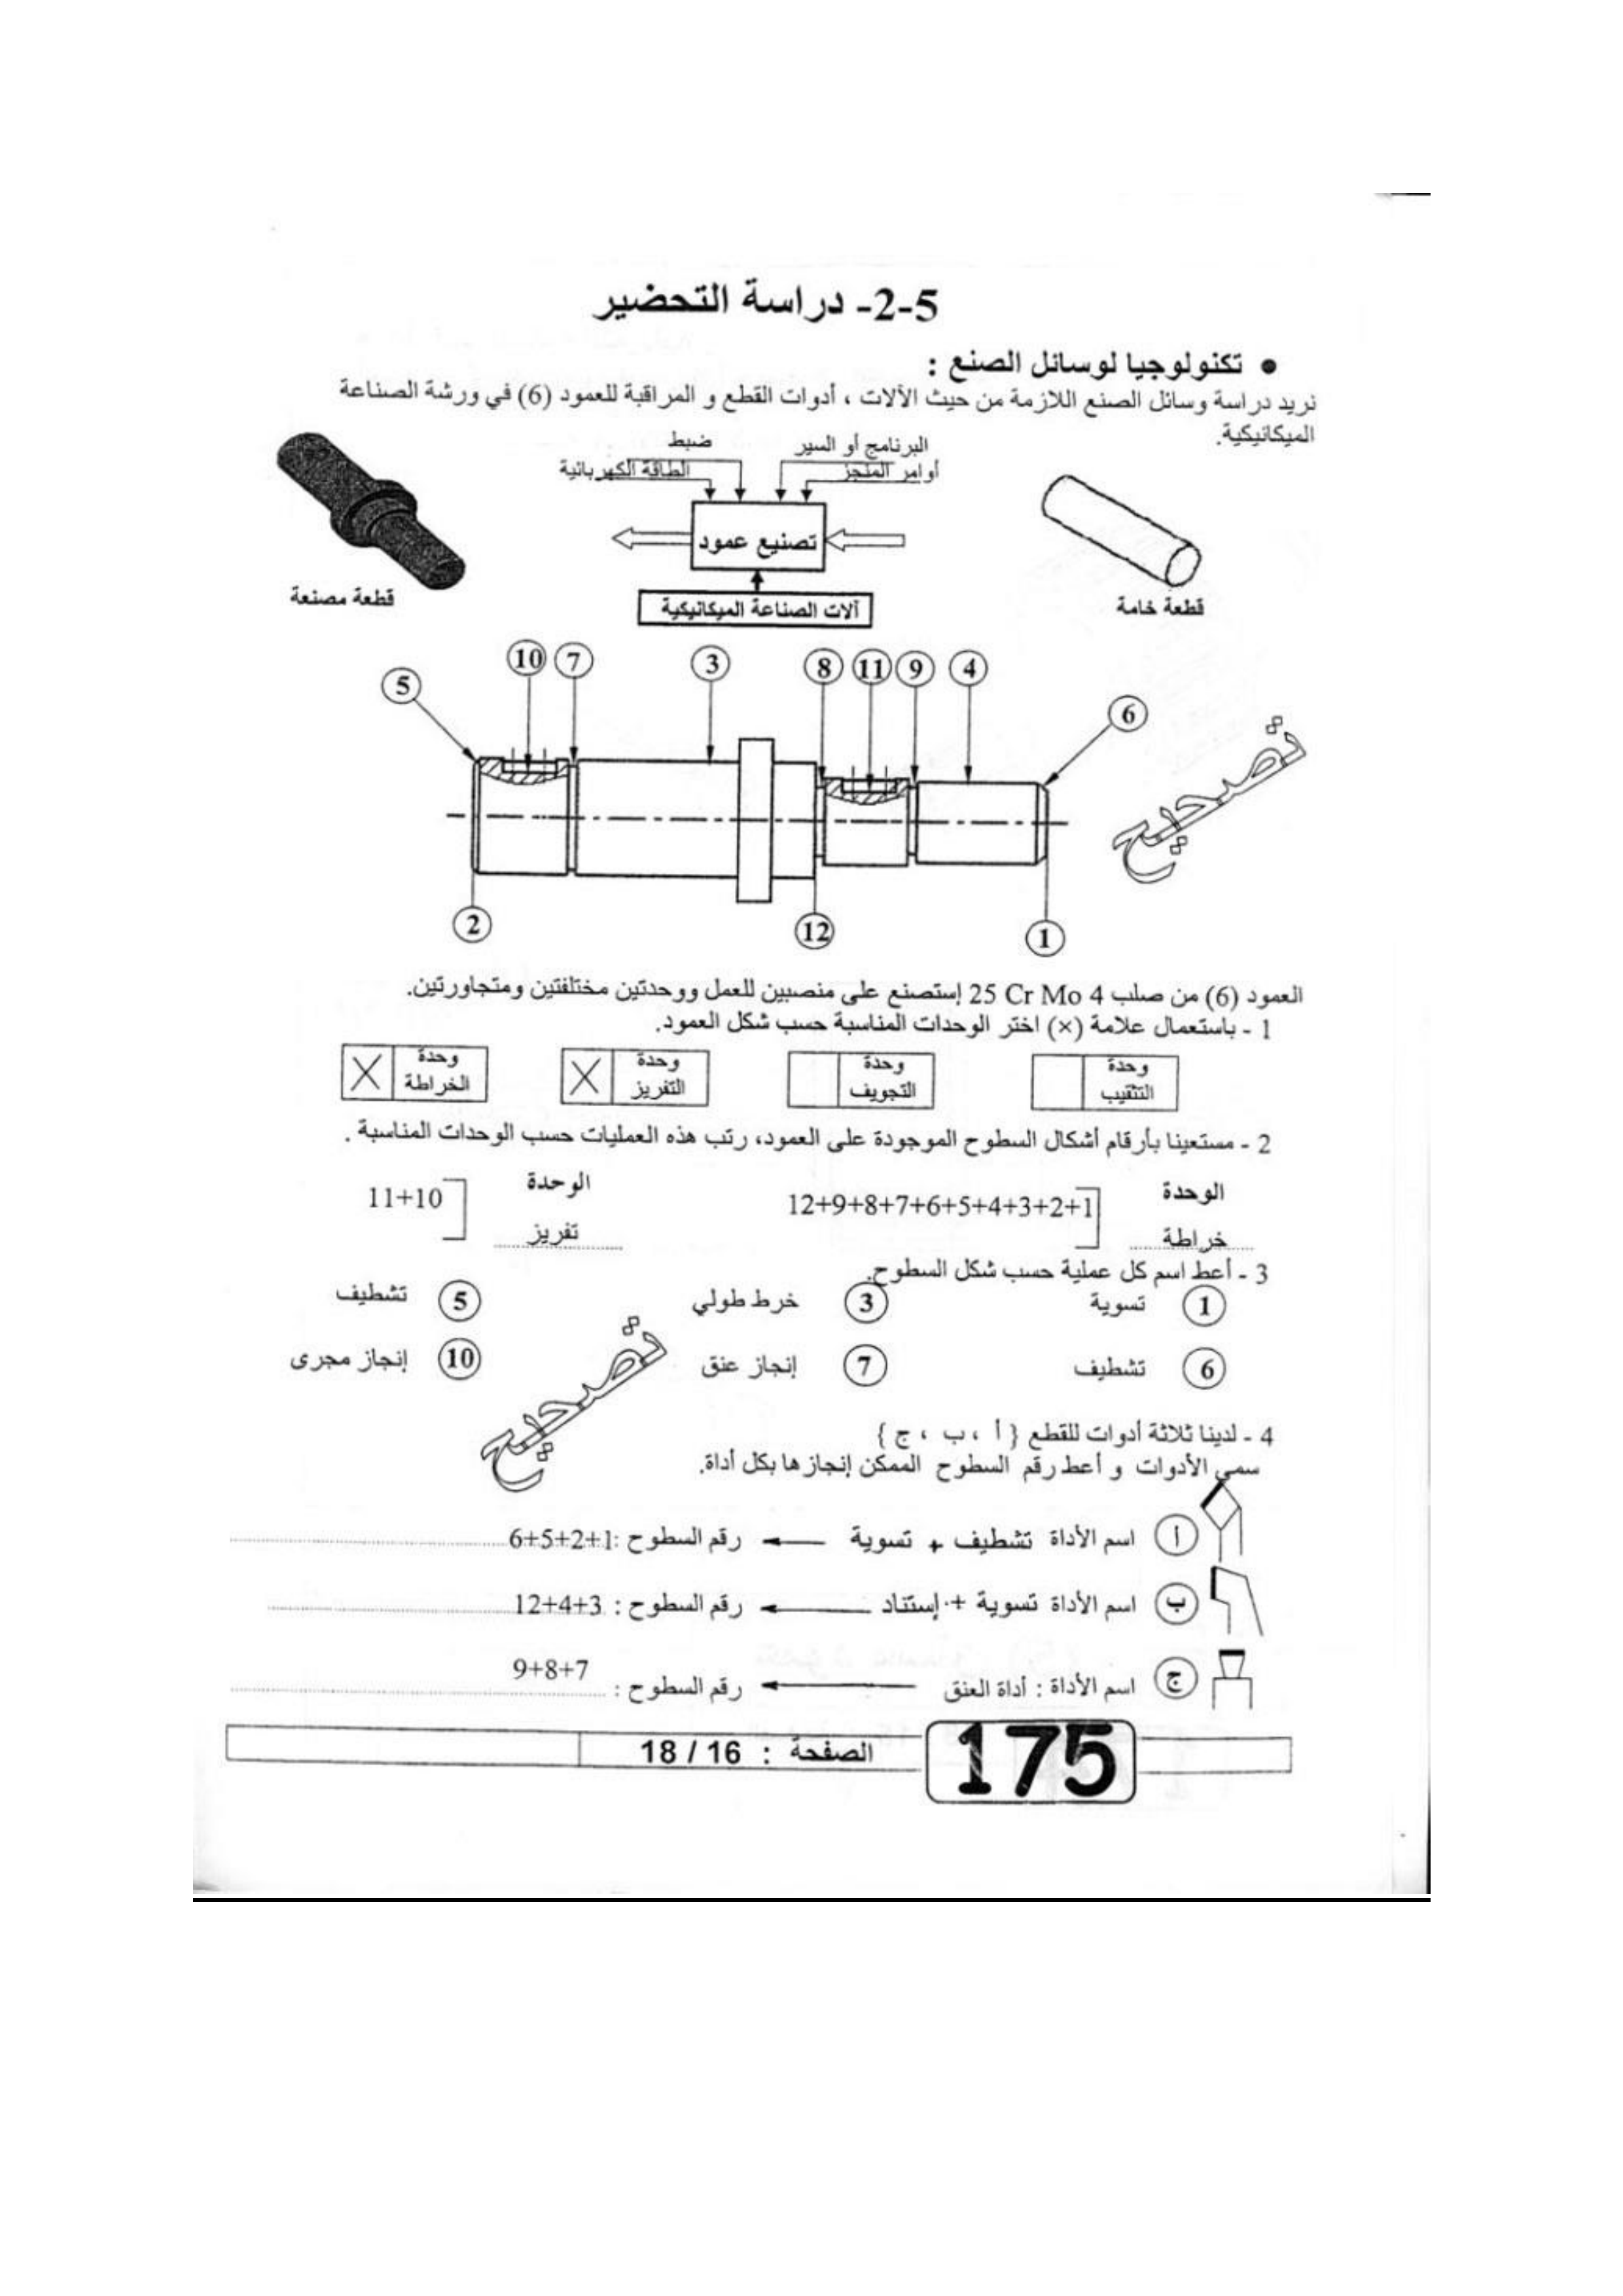 5-2- دراسة التحضير
● تكنولوجيا لوسائل الصنع :
نريد دراسة وسائل الصنع اللازمة من حيث الآلات ، أدوات القطع و المراقبة للعمود (6) في ورشة الصناعة
الميكانيكية.
ضبط
البرنامج أو السير
الطاقة الكهربائية
أوامر المنجز
تصنيع عمود
آلات الصناعة الميكانيكية
قطعة خامة
قطعة مصنعة
10 7 3 8 11 9 4
5 6
تصحيح
2 12 1
العمود (6) من صلب 25 Cr Mo 4 إستصنع على منصبين للعمل ووحدتين مختلفتين ومتجاورتين.
1 - باستعمال علامة (×) اختر الوحدات المناسبة حسب شكل العمود.
وحدة التثقيب
وحدة التجويف
وحدة التفريز X
وحدة الخراطة X
2 - مستعينا بأرقام أشكال السطوح الموجودة على العمود، رتب هذه العمليات حسب الوحدات المناسبة .
الوحدة خراطة 12+9+8+7+6+5+4+3+2+1
الوحدة تفريز 11+10
3 - أعط اسم كل عملية حسب شكل السطوح.
1 تسوية 3 خرط طولي 5 تشطيف
6 تشطيف 7 إنجاز عنق 10 إنجاز مجرى
تصحيح
4 - لدينا ثلاثة أدوات للقطع { أ ، ب ، ج }
سمي الأدوات و أعط رقم السطوح الممكن إنجازها بكل أداة.
أ اسم الأداة تشطيف + تسوية رقم السطوح :6+5+2+1
ب اسم الأداة تسوية + إستناد رقم السطوح : 12+4+3
ج اسم الأداة : أداة العنق رقم السطوح : 9+8+7
175
الصفحة : 16 / 18